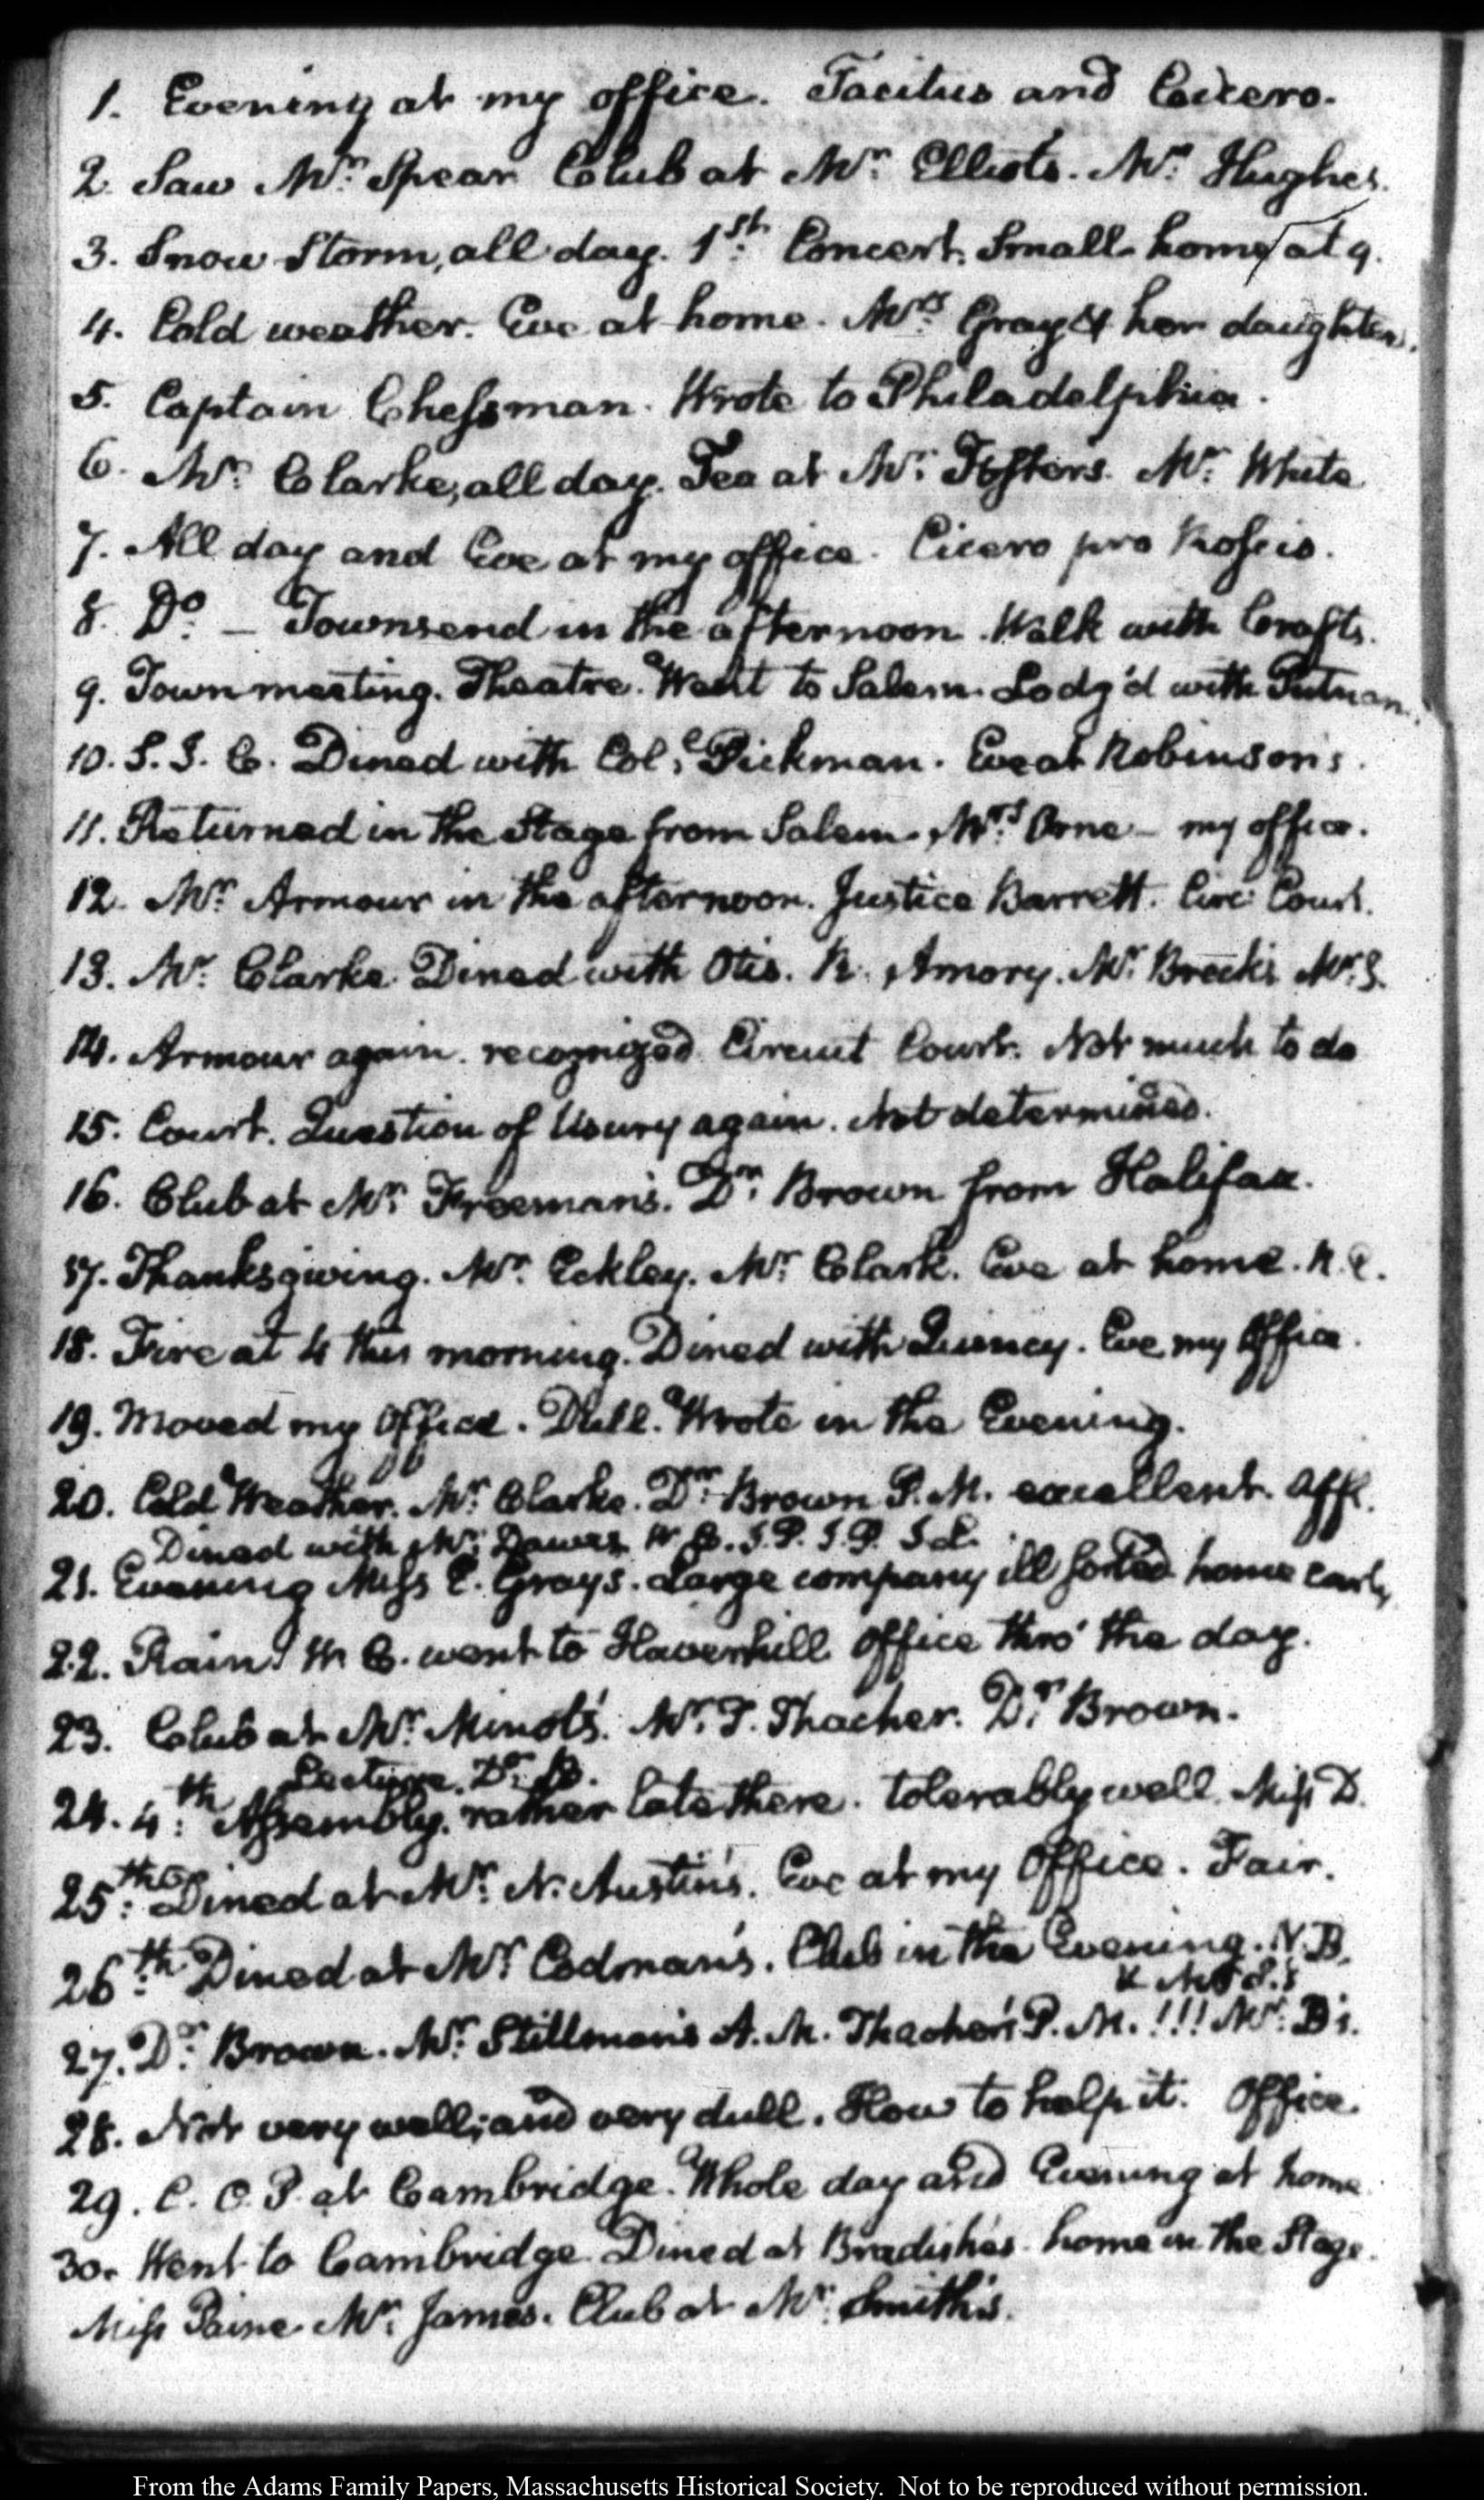 1. Evening at my office. Tacitus and Cicero.
2. Saw Mr. Spear Club at Mr. Elliots. Mr. Hughes.
3. Snow Storm, all day. 1st. Concert. Small home at 9.
4. Cold weather. Eve at home. Mrs. Gray & her daughters.
5. Captain Chessman. Wrote to Philadelphia.
6. Mr. Clarke, all day. Tea at Mr. Foster's. Mr. White
7. All day and Eve at my office. Cicero pro Roscio.
8. Do. — Townsend in the afternoon. Walk with Crafts.
9. Town meeting. Theatre. Went to Salem. Lodg'd with Putnam.
10. S. J. C. Dined with Col. Pickman. Eve at Robinson's.
11. Returned in the Stage from Salem. Mrs. Orne — my office.
12. Mr. Armour in the afternoon. Justice Barrett. Circ: Court.
13. Mr. Clarke. Dined with Otis. R. Amory. Mr. Brecks Mr. S.
14. Armour again. recognized. Circuit Court. Not much to do
15. Court. Question of Usury again. Not determined.
16. Club at Mr. Freeman's. Dr. Brown from Halifax.
17. Thanksgiving. Mr. Eckley. Mr. Clark. Eve at home. N. C.
18. Fire at 4 this morning. Dined with Quincy. Eve my Office.
19. Moved my Office. Dull. Wrote in the Evening.
20. Cold Weather. Mr. Clarke. Dr. Brown P. M. excellent. Aff.
Dined with Mr. Dawes W. C. J. P. J. P. J. L.
21. Evening Miss C. Grays. Large company ill sorted home early
22. Rain. W. C. went to Haverhill Office thro' the day.
23. Club at Mr. Minot's. Mr. T. Thacher. Dr. Brown.
Lecture. Dr. B.
24. 4th. Assembly. rather late there. tolerably well. Miss D.
25th. Dined at Mr. N. Austin's. Eve at my Office. Fair.
26th. Dined at Mr. Codman's. Club in the Evening. N. B.
27. Dr. Brown. Mr. Stillman's A. M. Thacher's P. M. !!! Mr. B's.
28. Not very well; and very dull. How to help it. Office.
29. C. C. P. at Cambridge. Whole day and Evening at home.
30. Went to Cambridge Dined at Bradish's home in the Stage.
Miss Paine Mr. James. Club at Mr. Smith's.
From the Adams Family Papers, Massachusetts Historical Society. Not to be reproduced without permission.